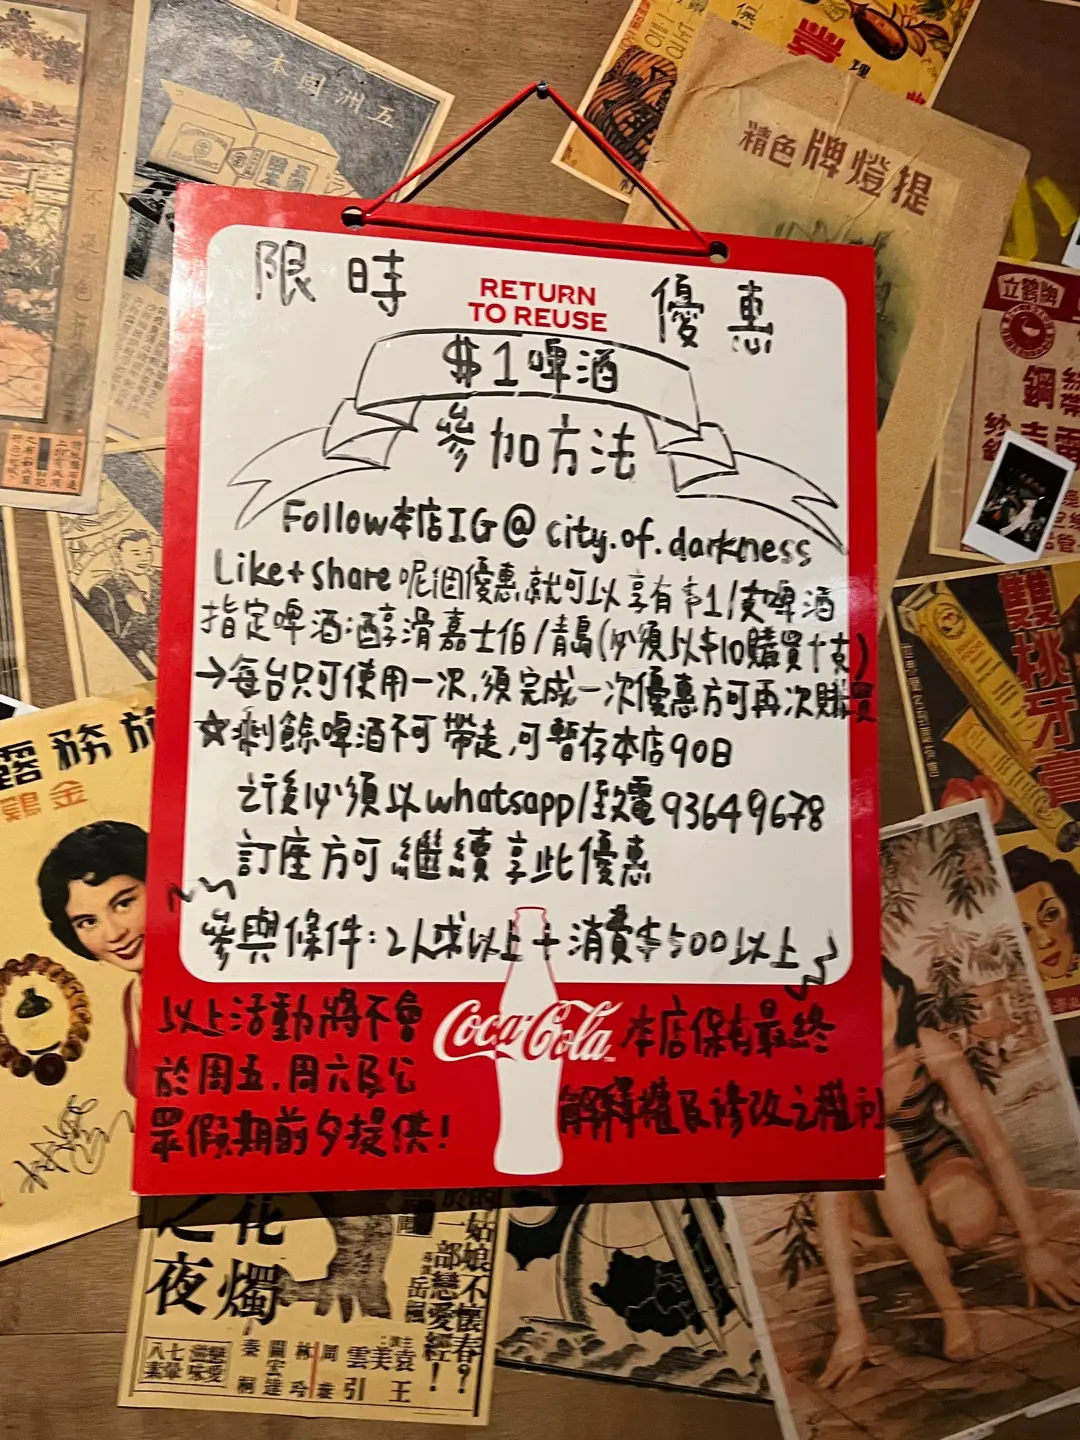 五洲固本
精色牌燈提
立鶴牌
限時
優惠
RETURN
TO REUSE
$1啤酒
參加方法
Follow本店IG@city.of.darkness
Like+share呢個優惠就可以享有$1/支啤酒
指定啤酒:醇滑嘉士伯/青島(必須以$10購買十支)
→每台只可使用一次,須完成一次優惠方可再次購買
☆剩餘啤酒不可帶走,可暫存本店90日
之後必須以whatsapp/致電93649678
訂座方可繼續享此優惠
參與條件:2人或以上+消費$500以上
Coca-Cola
以上活動將不會
於周五,周六及公
眾假期前夕提供!
本店保有最終
解釋權及修改之權利
雙桃牙膏
露務
雞金
夜燭
姑娘不懷春?
一部戀愛經!